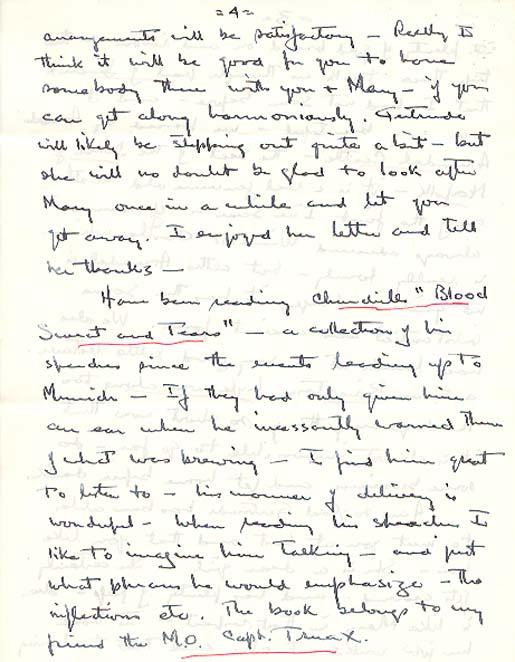 = 4 =
arrangements will be satisfactory – Really I
think it will be good for you to have
somebody there with you + Mary – if you
can get along harmoniously. Gertrude
will likely be stepping out quite a bit – but
she will no doubt be glad to look after
Mary once in a while and let you
get away. I enjoyed her letter and tell
her thanks –
Have been reading Churchill's "Blood
Sweat and Tears" – a collection of his
speeches since the events leading up to
Munich – If they had only given him
an ear when he incessantly warned them
of what was brewing – I find him great
to listen to – his manner of delivery is
wonderful – When reading his speeches I
like to imagine him talking – and just
what phrases he would emphasize – the
inflections etc. The book belongs to my
friend the M.O. Capt. Truax.